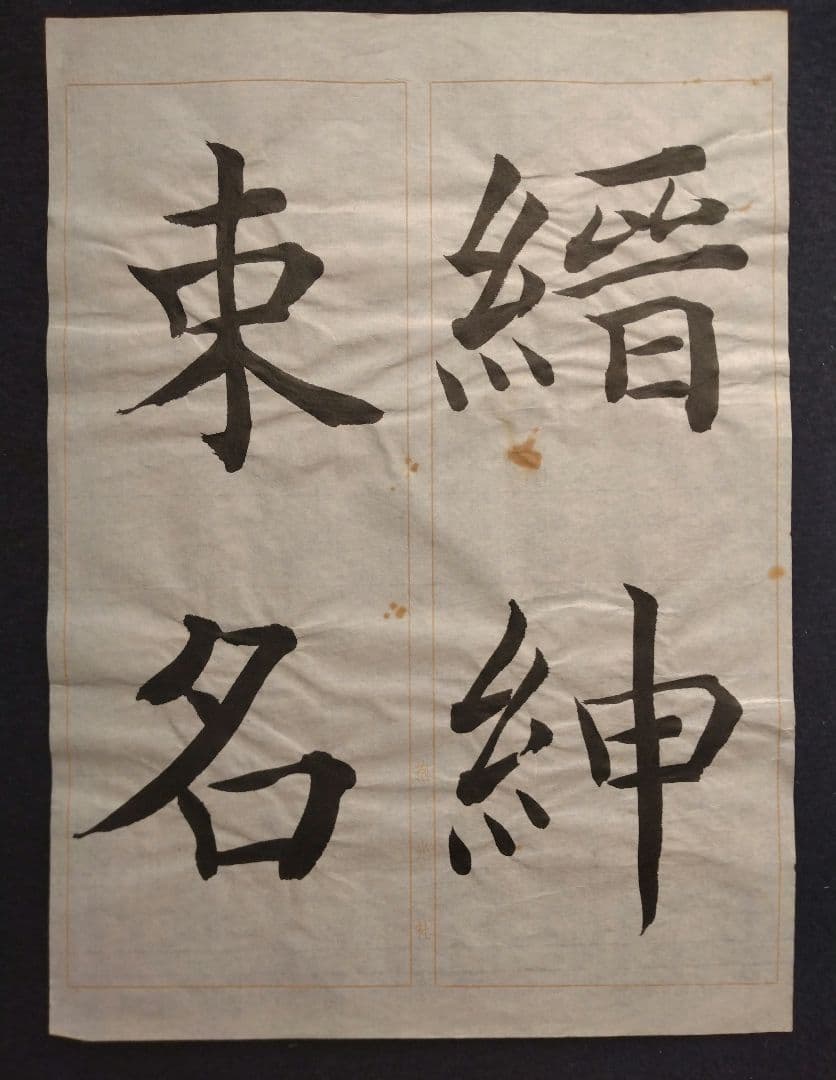 縉紳
束名